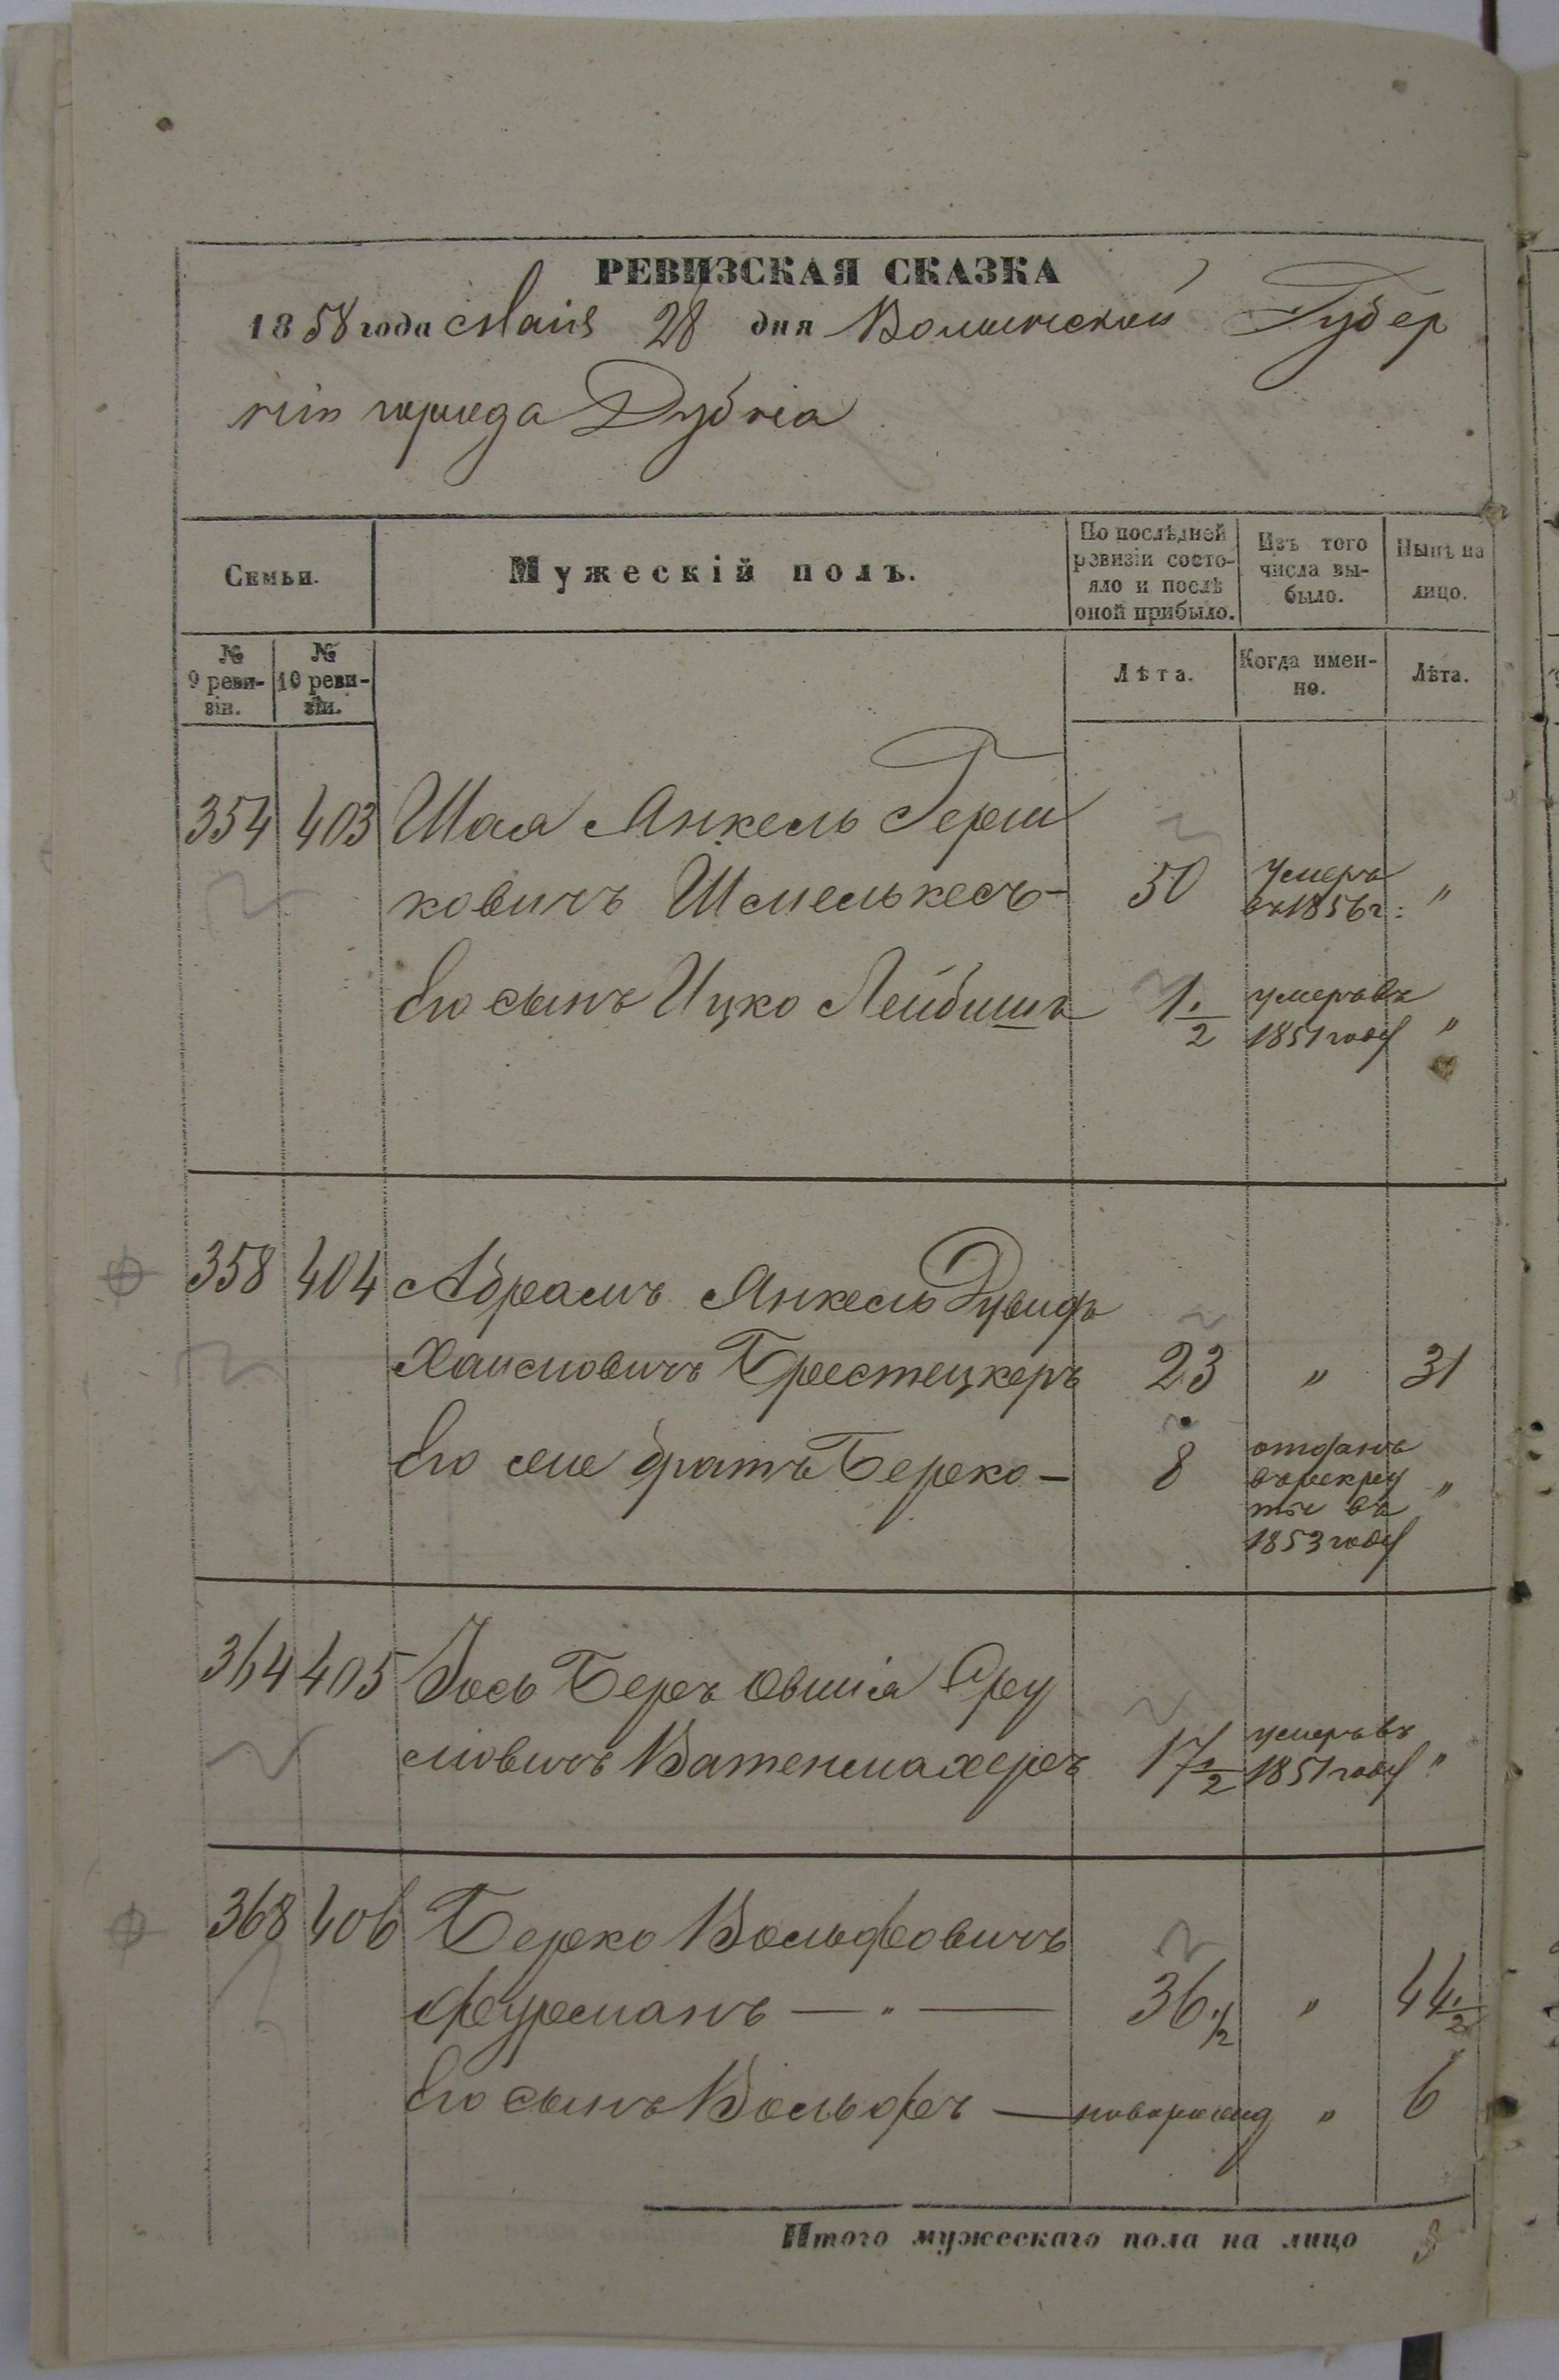 РЕВИЗСКАЯ СКАЗКА
1858 года Маія 28 дня Волынской Губер
ніи города Дубна
Семьи.
Мужескій полъ.
По послѣдней ревизіи состо-
яло и послѣ
оной прибыло.
Изъ того
числа вы-
было.
Нынѣ на
лицо.
№
9 реви-
зіи.
№
10 реви-
зіи.
Лѣта.
Когда имен-
но.
Лѣта.
354 403 Шая Янкель Герш
ковичъ Шмелькесъ - 50 умеръ въ 1856 г: "
Его сынъ Ицко Лейбишъ 1 1/2 умеръ въ 1851 году "
358 404 Абрамъ Янкель Дувидъ
Хаимовичъ Берестецкеръ 23 " 31
Его же братъ Берко - 8 отданъ
въ рекру
ты въ "
1853 году
364 405 Іось Беръ Овшія Сру
ловичъ Ватенмахеръ 17 1/2 умеръ въ 1851 году "
368 406 Берко Вольфовичъ
Фурманъ — " — 36 1/2 " 44 1/2
Его сынъ Вольфъ — новорожд " 6
Итого мужескаго пола на лицо 3